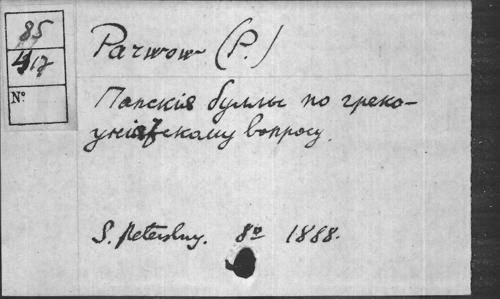 85
417
Nº
Parwow (P.)
Папскія буллы по греко-
уніатскому вопросу.
S. Petersburg. 8º 1888.